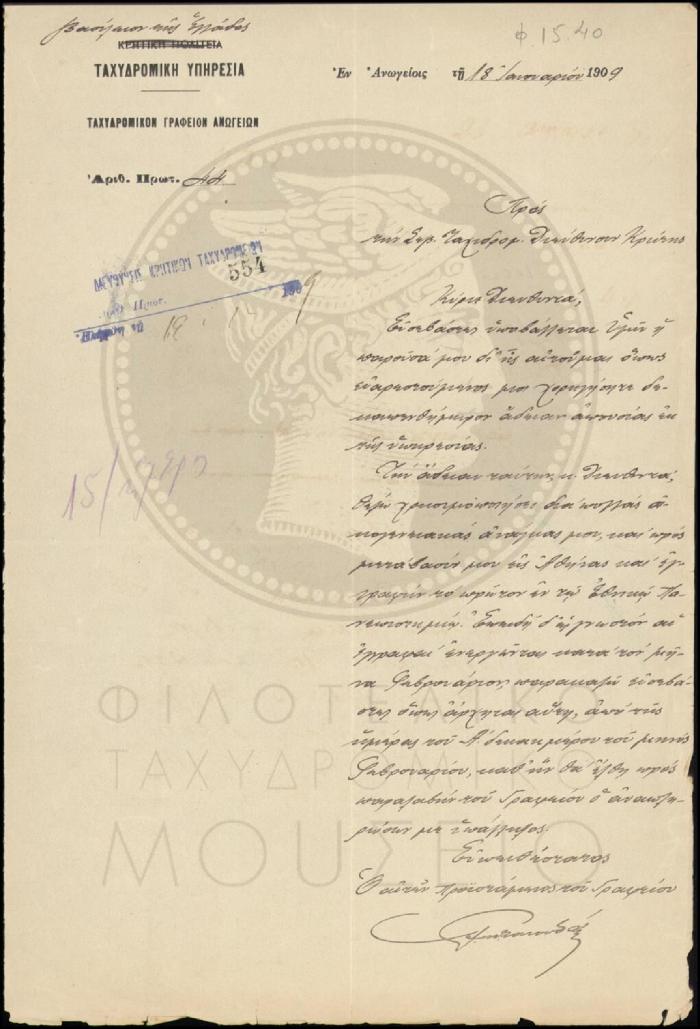 Βασίλειον τῆς Ἑλλάδος
ΚΡΗΤΙΚΗ ΠΟΛΙΤΕΙΑ
ΤΑΧΥΔΡΟΜΙΚΗ ΥΠΗΡΕΣΙΑ
ΤΑΧΥΔΡΟΜΙΚΟΝ ΓΡΑΦΕΙΟΝ ΑΝΩΓΕΙΩΝ
Ἀριθ. Πρωτ. 44
φ. 15.40
Ἐν Ἀνωγείοις τῇ 18 Ἰανουαρίου 1909
ΔΙΕΥΘΥΝΣΙΣ ΚΡΗΤΙΚΩΝ ΤΑΧΥΔΡΟΜΕΙΩΝ
Ἀριθ. Πρωτ. 554
1909
Πρὸς
τὴν Σεβ. Ταχυδρομ. Διεύθυνσιν Κρήτης
Κύριε Διευθυντά,
Εὐσεβάστως ὑποβάλλεται Ὑμῖν ἡ
παροῦσά μου δι' ἧς αἰτοῦμαι ὅπως
εὐαρεστούμενος μοι χορηγήσητε δε-
καπενθήμερον ἄδειαν ἀπουσίας ἐκ
τῆς ὑπηρεσίας.
Τὴν ἄδειαν ταύτην, κ. Διευθυντά,
θέλω χρησιμοποιήσει διὰ πολλὰς οἰ-
κογενειακάς ἀνάγκας μου, καὶ πρὸς
μετάβασίν μου εἰς Ἀθήνας καὶ ἐγ-
γραφὴν τὸ πρῶτον ἐν τῷ Ἐθνικῷ Πα-
νεπιστημίῳ. Ἐπειδὴ δ' ὡς γνωστὸν αἱ
ἐγγραφαὶ ἐνεργοῦνται κατὰ τὸν μῆ-
να Φεβρουάριον, παρακαλῶ εὐσεβά-
στως ὅπως ἄρχηται αὕτη, ἀπὸ τῆς
ἡμέρας τοῦ Α' δεκαημέρου τοῦ μηνὸς
Φεβρουαρίου, καθ' ἣν θὰ ἔλθῃ πρὸς
παραλαβὴν τοῦ Γραφείου ὁ ἀναπλη-
ρώσων με ὑπάλληλος.
Εὐπειθέστατος
Ὁ αἰτῶν προϊστάμενος τοῦ Γραφείου
ΦΙΛΟΤΕΛΙΚΟ
ΤΑΧΥΔΡΟΜΙΚΟ
ΜΟΥΣΕΙΟ